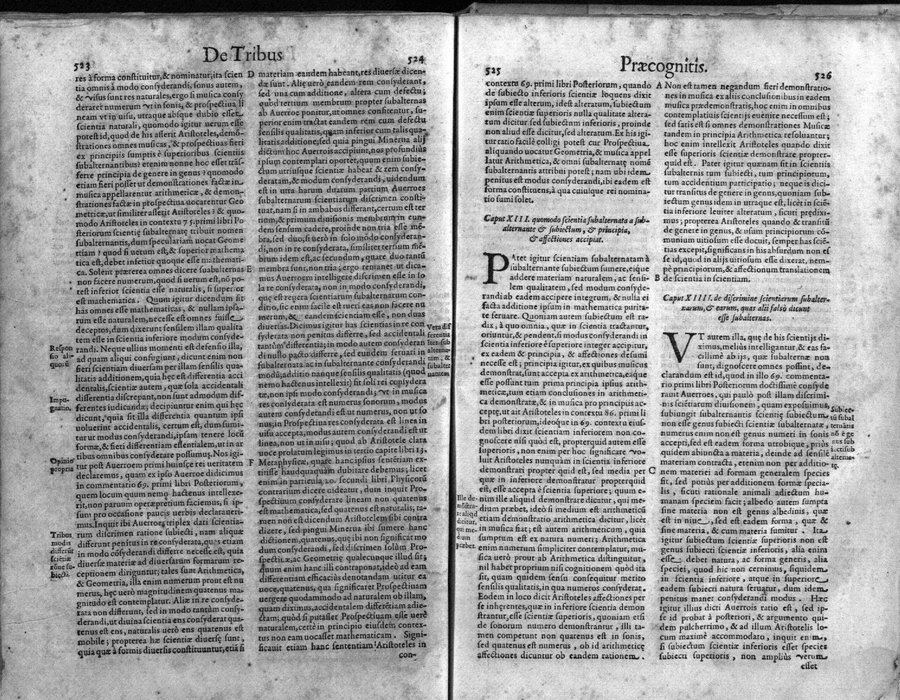 De Tribus
523
res à forma constituitur, & nominatur, ita scien
tia omnis à modo considerandi. sonus autem,
& visus sunt res naturales, ergo si musica consy
deraret numerum vt in sonis, & prospectiua li
neam vt in visu, vtraque absque dubio esset
scientia naturali, quomodo igitur uerum esse
potest id, quod alias asserit Aristoteles, demon-
strationes omnes musicas, & prospectiuas fieri
ex principijs sumptis è superioribus scientijs
subalternantibus? etenim nonne hoc esset trās-
ferre principia de genere in genus? quomodo
etiam fieri posset ut demonstrationes factæ in
musica appellarentur arithmeticæ, & demon-
strationes factæ in prospectiua uocarentur Geo
metricæ, ut similiter asserit Aristoteles? & quo-
modo Aristoteles in contextu 75. primi libri Po
steriorum scientiæ subalternatę tribuit nomen
subalternantis, dum speculariam uocat Geome
triam? quod si uerum est, & superior mathema
tica est, debet inferior quoque esse mathemati-
ca. Solent præterea omnes dicere subalternas
non facere numerum, quod si uerum est, nō po-
test inferior esse scientia naturalis, si superior
est mathematica. Quum igitur dicendum sit
has omnes esse mathematicas, & nullam ipsa-
rum esse naturalem, necesse est omnes fuisse
deceptos, dum dixerunt sensilem illam qualita
tem esse in scientia inferiore modum conside-
randi. Neque ullius momenti est defensio illa,
ad quam aliqui confugiunt, dicunt enim non
fieri scientiam diuersam per illam sensilis qua-
litatis additionem, quia hęc est differentia acci
dentalis, scientiæ autem, quæ sola accidentali
differentia discrepant, non sunt admodum dif-
ferentes iudicandæ; decipiuntur enim qui hęc
dicunt, quia sit illa differentia quantum ipsi
uoluerint accidentalis, certum est, dum sumi-
tur ut modus considerandi, ipsam tenere locū
formæ, & fieri differentiam essentialem, ut in ar
tibus omnibus conferatę possumus. Nos igi-
tur post Auerroem primi huiusce rei ueritatem
declaremus, quam ex ipso Auerroe didicimus
in commentario 69. primi libri Posteriorum,
quem locum quum nemo hactenus intellexe-
rit, non paruum operæpretium faciemus, si ip-
sum pro occasione paucis uerbis declarauer-
mus. Inquit ibi Auerroes triplex dari scientia-
rum discrimen ratione subiecti, nam aliquæ
differunt penitus in re considerata, quas etiam
in modo considerandi differre necesse est, quia
diuersæ materiæ ad diuersarum formarum re-
ceptionem diriguntur; tales sunt Arithmetica,
& Geometria, illa enim numerum prout est nu
merus, hęc uerò magnitudinem quatenus ma-
gnitudo est contemplatur. Aliæ in re conside-
rata non differunt, sed in modo tantùm consy-
derandi, ut diuina scientia ens considerat qua-
tenus est ens, naturalis uerò ens quatenus est
mobile; propterea hæ scientiæ diuersę sunt,
quia quæ à formis diuersis constituuntur, etiā si
Respon
sio ali-
quorū
Impu-
gnatio.
Opinio
propria
Tribus
modis
differūt
scientię
ratione
subiecti
524
materiam eandem habeant, res diuersæ dicen-
dæ sunt. Aliæ uerò eandem rem consyderant,
sed una cum additione, altera cum defectu;
quòd tertium membrum propter subalternas
ab Auerroe ponitur, ut omnes confitentur, su-
perior enim tractat eandem rem cum defectu
sensilis qualitatis, quam inferior cum talis qua-
litatis additione; sed quia pingui Minerua ali
dictum hoc Auerrois accipiunt, nos profundiùs
ipsum contemplari oportet, quum enim subie-
ctum utriusque scientiæ habeat & rem consy-
deratam, & modum considerandi, uidendum
est in utra harum duarum partium Auerroes
subalternarum scientiarum discrimen consti-
tuat, nam si in ambabus differant, certum est ter
tium, & primum diuisionis membrum in eun-
dem sensum cadere, proinde non tria esse mē-
bra, sed duo; si uerò in solo modo consideran-
di, non in re considerata, similiter tersum mē-
brum idem est, ac secundum, quare duo tantū
membra sunt, non tria; ergo remanet ut dica-
mus Auerroem intelligere discrimen esse in so-
la re considerata, non in modo considerandi,
quę est regera scientiarum subalternarum con-
ditio, sic enim facilè est nos cū nō facere nu
merum, & eandem scientiam esse, non duas
diuersas. Dicimus igitur has scientias in re con-
siderata non penitus differre, sed accidentali
tantùm differentia; in modo autem considerā
di nullo pacto differre, sed eundem seruari in
subalternata considerandi modum, quia modi
modo additio nanque sensilis qualitatis (quod
nemo hactenus intellexit) fit soli rei considera
tæ, non ipsi modo considerandi; vt in musica
res considerata est numerus sonorum, modus
autem considerandi est ut numerus, non ut so
nus; in Prospectiua res considerata est linea in
uisu accepta, modus autem considerandi est ut li
nea, non ut in uisu; quod ab Aristotele clara
uoce prolatum legimus in tertio capite libri 13.
Metaphysicæ, quare hanc ipsius sententiam ex-
titisse haudquaquàm dubitare debemus; licet
enim in particula 20. secundi libri Physicorū
contrarium dicere uideatur, dum inquit Pro-
spectiuum consyderare lineam non quatenus
est mathematica, sed quatenus est naturalis, ta-
men non est dicendum Aristotelem sibi contra
dicere, sed pingui Minerua ibi sumere hanc
dictionem, quatenus, quæ ibi non significat mo
dum considerandi, sed discrimen solùm Pro-
spectiuæ, ac Geometriæ qualecunque illud sit;
quum enim hanc illi contraponat, ideò ad eam
differentiam efficaciùs denotandam utitur ea
uoce, quatenus, qua significaret Prospectiuam
uergere quodammodo ad naturalem ob illam,
quam diximus, accidentalem differētiam adie-
ctam; quòd si putasset Prospectiuam esse uerè
naturalem, certè in principio eiusdem contex-
tus non eam uocasset mathematicam. Signi-
ficauit etiam hanc sententiam Aristoteles in
con-
Vera dif
ferentia
inter sub
alternan
tem, &
subalter
natam.
Præcognitis.
525
contextu 69. primi libri Posteriorum, quando
de subiecto inferioris scientiæ loquens dixit
ipsum esse alterum, idest alteratum, subiectum
enim superioris scientiæ nulla qualitate altera-
tum dicitur sed subiectum inferioris, proinde
non aliud esse dicitur, sed alteratum. Ex his igi-
tur ratio facilè colligi potest cur Prospectiua,
aliquando uocatur Geometria, & musica appel
latur Arithmetica, & omni subalternatę nomē
subalternantis attribui potest; nam ubi idem
penitus est modus considerandi, ibi eadem est
forma constituens, à qua cuiusque rei nomina-
tio sumi solet.
Caput XIII. quomodo scientia subalternata à sub-
alternante & subiectum, & principia,
& affectiones accipiat.
PAtet igitur scientiam subalternatam à
subalternante subiectum sumere, eique
addere materiam naturalem, ac sensi-
lem qualitatem, sed modum consyde-
randi ab eadem accipere integrum, & nulla ei
facta additione ipsum in mathematica purita-
te seruare. Quoniam autem subiectum est ra-
dix, à quo omnia, quę in scientia tractantur,
oriuntur, & pendent, si modus considerandi in
scientia inferiore è superiore integer accipitur,
ex eadem & principia, & affectiones desumi
necesse est; principia igitur, ex quibus musicus
demonstrat, sunt accepta ex arithmetica, eique
esse possunt tum prima principia ipsius arith-
meticæ, tum etiam conclusiones in arithmeti-
ca demonstratæ, & in musica pro principijs ac-
ceptę, ut ait Aristoteles in contextu 86. primi li
bri posteriorum, ideoque in 69. contextu eius-
dem libri dixit scientiam inferiorem non co-
gnoscere nisi quòd est, propterquid autem esse
superioris, non enim per hoc significare vo-
luit Aristoteles nunquam in scientia inferiore
demonstrari propter quid est, sed media per
quæ in inferiore demonstratur propterquid
est, esse accepta è scientia superiore; quum e-
nim ille aliquid demonstrare dicatur, qui me-
dium præbet, ideò si medium est arithmeticū
etiam demonstratio arithmetica dicitur, licèt
in musica fiat; est autem arithmeticum, quia
sumptum est ex natura numeri; Arithmetica
enim numerum simpliciter contemplatur, mu-
sica uerò prout ab Arithmetica distinguitur,
nil habet proprium nisi cognitionem quòd ita
sit, quam quidem sensu consequitur merito
sensilis qualitatis, in qua numeros consyderat.
Eodem in loco dicit Aristoteles affectiones per
se inhęrentes, quæ in inferiore scientia demon
strantur, esse scientiæ superioris, quoniam etsi
de sonorum numero demonstrantur, illi ta-
men competunt non quatenus est in sonis,
sed quatenus est numerus, ob id arithmeticę
affectiones dicuntur ob eandem rationem.
Ille de-
mōstra-
re aliqd
dicitur,
qui me-
dium
præbet.
526
Non est tamen negandum fieri demonstratio-
nes in musica ex alijs conclusionibus in eadem
musica prædemonstratis, hoc enim in omnibus
contemplatiuis scientijs euenire necessum est;
sed satis est si omnes demonstrationes Musicæ
tandem in principia Arithmeticæ resoluantur;
hoc enim intellexit Aristoteles quando dixit
esse superioris scientiæ demonstrare propter-
quid est. Patet igitur quænam sit in scientijs
subalternis tum subiecti, tum principiorum,
tum accidentium participatio; neque is dici-
tur transitus de genere in genus, quoniam sub-
iectum genus idem in utraque est, licèt in scien
tia inferiore leuiter alteratum, sicuti prædixi-
mus; propterea Aristoteles quando & transitū
de genere in genus, & usum principiorum cō-
munium uitiosum esse docuit, semper has scien
tias excepit, significans in his absurdum non es-
se id, quod in alijs uitiosum esse dixerat, nem-
pe principiorum, & affectionum translationem
de scientia in scientiam.
Caput XIIII. de discrimine scientiarum subalter-
narum, & earum, quas alij falsò dicunt
esse subalternas.
VT autem illa, quę de his scientijs di-
ximus, meliùs intelligantur, & eas fa-
cillimè ab ijs, quæ subalternæ non
sunt, dignoscere omnes possint, de-
clarandum est id, quod in illo 69. commenta-
rio primi libri Posteriorum doctissimè consyde
rauit Auerroes, qui paulò post illam discrimi-
nis scientiarum diuisionem, quam exposuimus
subiungit subalternantis scientię subiectum
non esse genus subiecti scientiæ subalternatæ,
numerus enim non est genus numeri in sonis
accepti, sed est eadem forma utrobique, priùs
quidem abiuncta à materia, deinde ad sensile
materiam contracta, etenim non per additio-
nem materiei ad formam generalem species
fit, sed potiùs per additionem formæ specia-
lis, sicuti rationale animali adiectum hu-
manam speciem facit; albedo autem sumpta
sine materia non est genus albedinis, quæ
est in niue, sed est eadem forma, quæ &
sine materia, & cum materia sumitur. Ita
igitur subiectum scientiæ superioris non est
genus subiecti scientiæ inferioris, alia enim
esse debet natura, ac forma generis, alia
speciei, quod hic non cernimus, siquidem
in scientia inferiore, atque in superiore
eadem subiecti natura seruatur, dum idem
penitus manet considerandi modus. Hæc
igitur illius dicti Auerrois ratio est, sed ip-
se id probat à posteriori, & argumento qui-
dem pulcherrimo, & ad illum Aristotelis lo-
cum maximè accommodato, inquit enim,
si subiectum scientiæ inferioris esset species
subiecti superioris, non ampliùs verum
esset